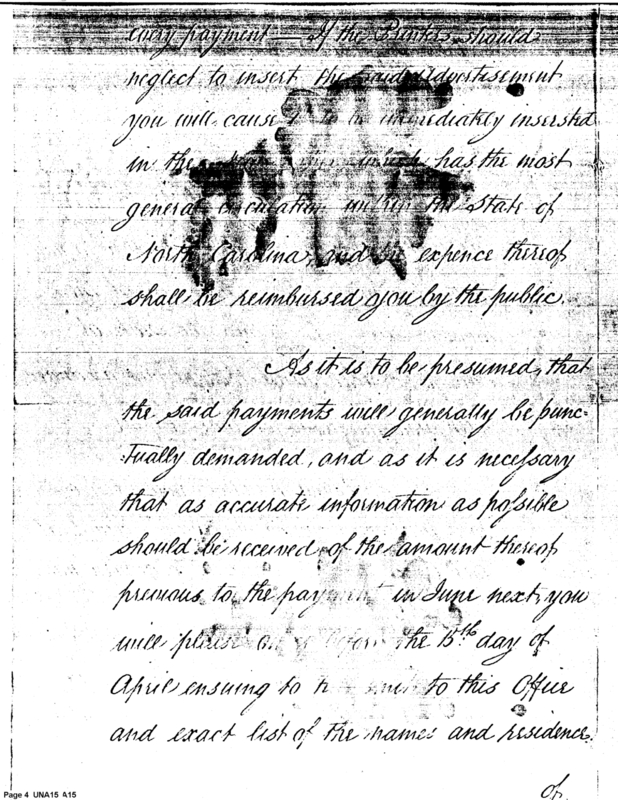 every payment — If the Printers should
neglect to insert the said Advertisement
you will cause it to be immediately inserted
in the which has the most
general circulation within the State of
North Carolina, and the expence thereof
shall be reimbursed you by the public.
As it is to be presumed, that
the said payments will generally be punc-
tually demanded, and as it is necessary
that as accurate information as possible
should be received of the amount thereof
previous to the payment in June next, you
will please on or before the 15th day of
April ensuing to to this Office
and exact list of the names and residence
of
Page 4 UNA15 A15